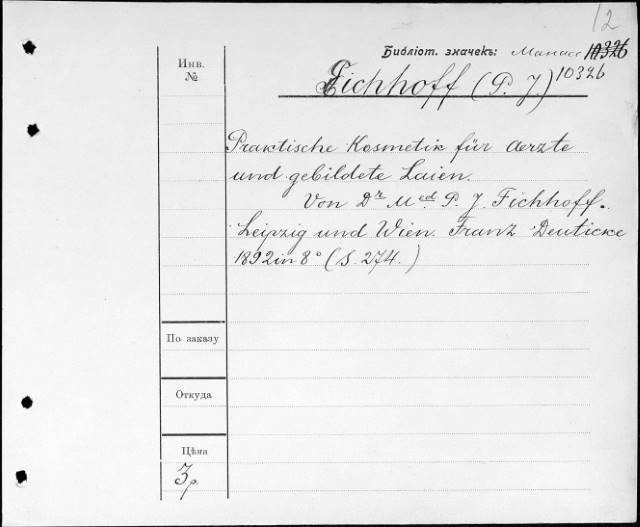 12
Библіот. значекъ: Манасс 10326
Инв.
№
Eichhoff (P. J.) 10326
Praktische Kosmetik für Aerzte
und gebildete Laien.
Von Dr Med P. J. Eichhoff.
Leipzig und Wien. Franz Deuticke
1892 in 8° (S. 274.)
По заказу
Откуда
Цѣна
3 р.